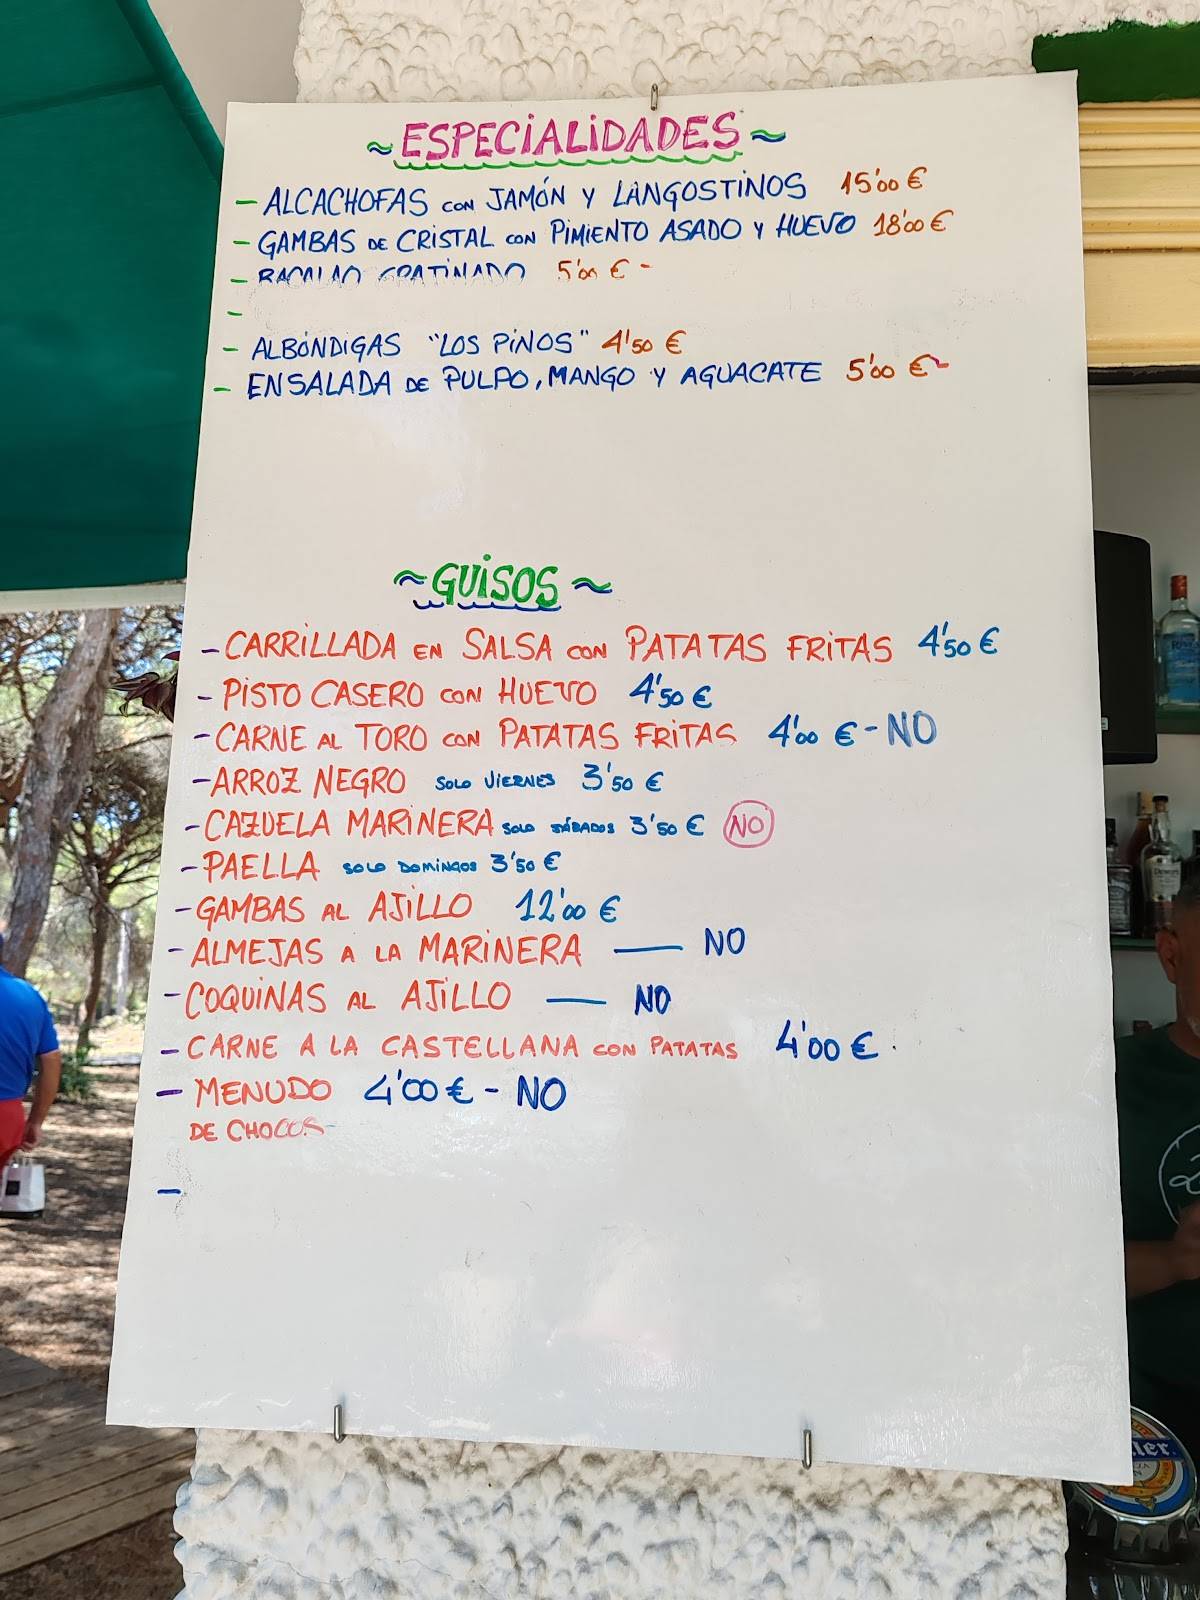 ~ESPECiALiDADES~
- ALCACHOFAS CON JAMÓN Y LANGOSTiNOS 15'00 €
- GAMBAS DE CRiSTAL CON PiMiENTO ASADO Y HUEVO 18'00 €
- BACALAO GRATiNADO 5'00 € -
-
- ALBÓNDiGAS "LOS PiNOS" 4'50 €
- ENSALADA DE PULPO, MANGO Y AGUACATE 5'00 €
~GUiSOS~
- CARRiLLADA EN SALSA CON PATATAS FRiTAS 4'50 €
- PiSTO CASERO CON HUEVO 4'50 €
- CARNE AL TORO CON PATATAS FRiTAS 4'00 € - NO
- ARROZ NEGRO SOLO ViERNES 3'50 €
- CAZUELA MARiNERA SOLO SÁBADOS 3'50 € NO
- PAELLA SOLO DOMiNGOS 3'50 €
- GAMBAS AL AJiLLO 12'00 €
- ALMEJAS A LA MARiNERA — NO
- COQUiNAS AL AJiLLO — NO
- CARNE A LA CASTELLANA CON PATATAS 4'00 €.
- MENUDO 4'00 € - NO
DE CHOCOS
-